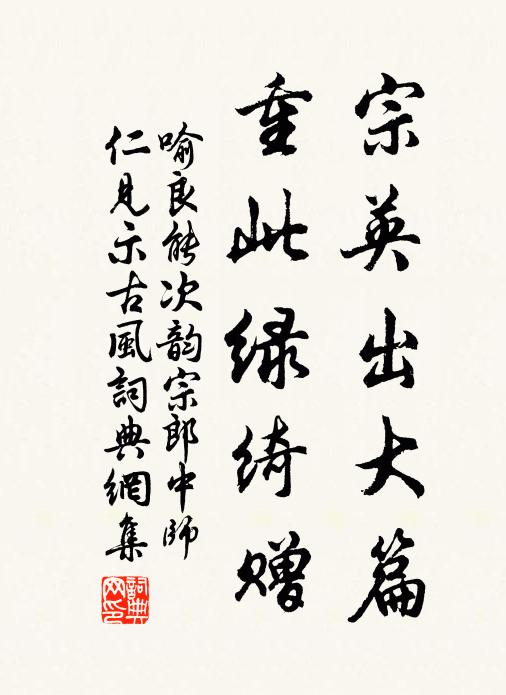 宗英出大篇
重此绿绮赠
喻良能次韵宗郎中师
仁见示古風詞典網集
詞典網印